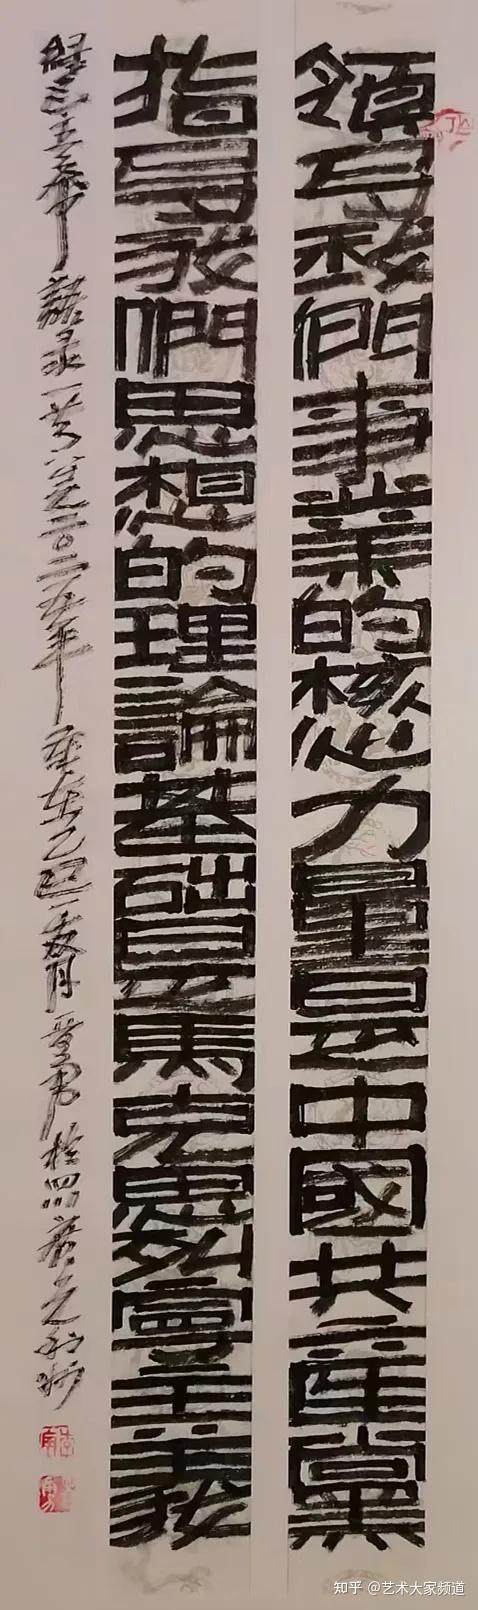 領导我們事業的核心力量是中國共產黨
指导我們思想的理論基础是馬克思列寧主義
二〇二五年 乙巳
知乎 @艺术大家频道